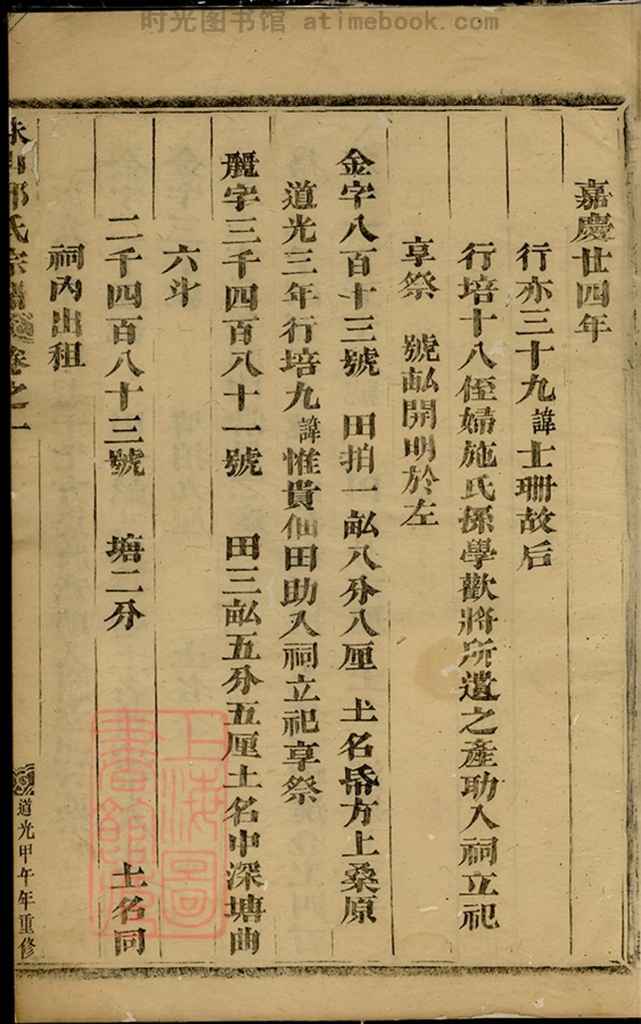 时光图书馆 atimebook.com
嘉慶廿四年
行亦三十九諱士珊故后
行培十八侄婦施氏孫學歡將所遺之產助入祠立祀
享祭 號畝開明於左
金字八百十三號 田拍一畝八分八厘 土名昏方上桑原
道光三年行培九諱惟貴佃田助入祠立祀享祭
麗字三千四百八十一號 田三畝五分五厘土名中深塘曲
六斗
二千四百八十三號 塘二分 土名同
祠內出租
氏宗譜 卷之一 道光甲午年重修
上海圖書館藏